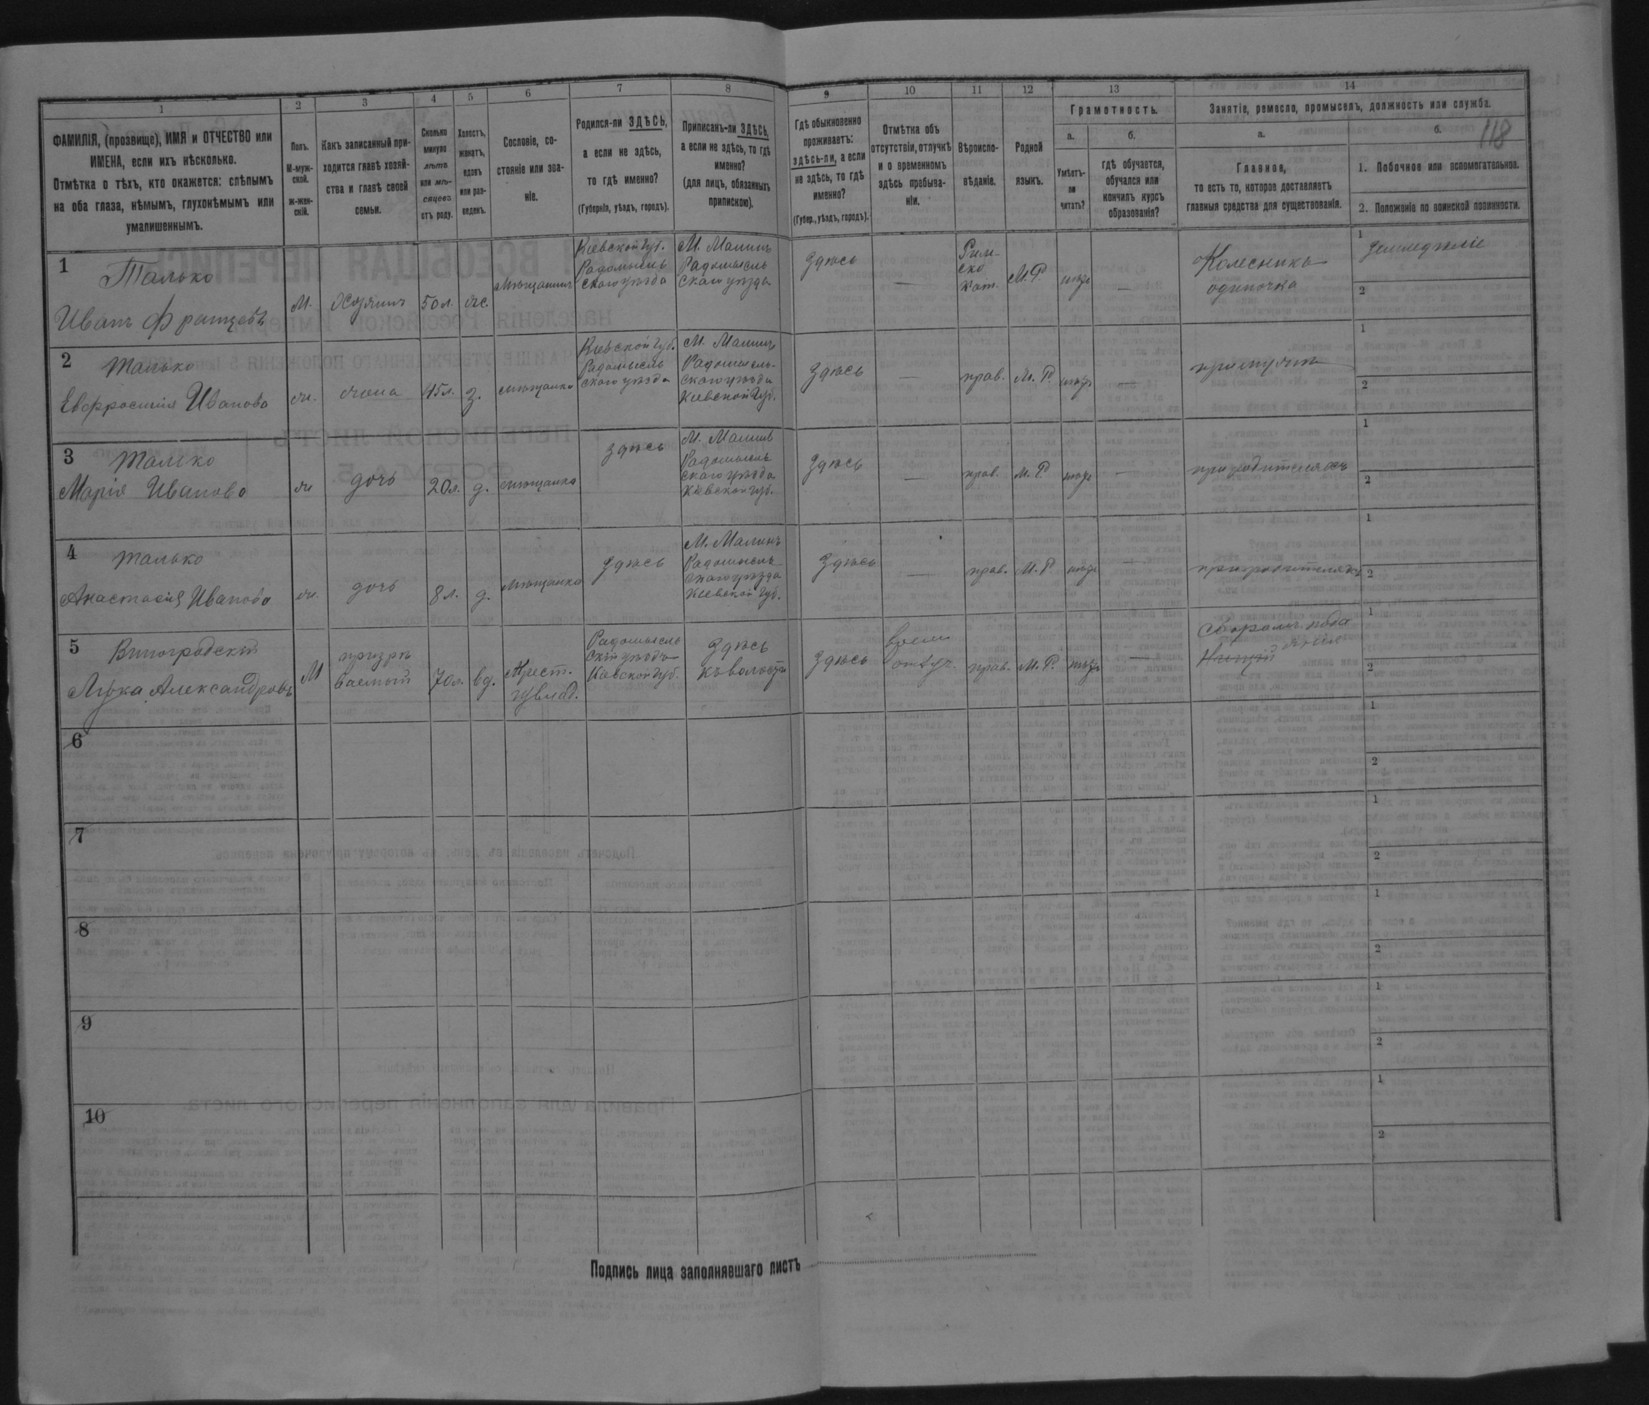 118
1 2 3 4 5 6 7 8 9 10 11 12 13 14
ФАМИЛІЯ, (прозвище), ИМЯ и ОТЧЕСТВО или
ИМЕНА, если ихъ нѣсколько.
Отмѣтка о тѣхъ, кто окажется: слѣпымъ
на оба глаза, нѣмымъ, глухонѣмымъ или
умалишеннымъ.
Полъ.
М-муж-
ской.
ж-жен-
скій.
Какъ записанный при-
ходится главѣ хозяй-
ства и главѣ своей
семьи.
Сколько
минуло
лѣтъ
или мѣ-
сяцевъ
отъ роду.
Холостъ,
женатъ,
вдовъ
или раз-
веденъ.
Сословіе, со-
стояніе или зва-
ніе.
Родился-ли ЗДѢСЬ,
а если не здѣсь,
то гдѣ именно?
(Губернія, уѣздъ, городъ).
Приписанъ-ли ЗДѢСЬ,
а если не здѣсь, то гдѣ
именно?
(для лицъ, обязанныхъ
припискою).
Гдѣ обыкновенно
проживаетъ:
здѣсь-ли, а если
не здѣсь, то гдѣ
именно?
(Губер., уѣздъ, городъ).
Отмѣтка объ
отсутствіи, отлучкѣ
и о временномъ
здѣсь пребыва-
ніи.
Вѣроиспо-
вѣданіе.
Родной
языкъ.
Грамотность.
а.
Умѣетъ-
ли
читать?
б.
гдѣ обучается,
обучался или
кончилъ курсъ
образованія?
Занятіе, ремесло, промыселъ, должность или служба.
а.
Главное,
то есть то, которое доставляетъ
главныя средства для существованія.
б.
1. Побочное или вспомогательное.
2. Положеніе по воинской повинности.
1
Талько
Иванъ Францовъ
М. Хозяинъ 50л. ж. мѣщанинъ
Кіевской губ.
Радомысль
скаго уѣзда
М. Малинъ
Радомысль
скаго уѣзда
здѣсь —
Рим-
ско
Кат.
М.Р. —
Колесникъ
одиночка
1 Земледѣліе
2
2
Талько
Евфросинія Иванова
ж. жена 45л. з. мѣщанка
Кіевской губ.
Радомысль
скаго уѣзда
М. Малинъ
Радомысль-
скаго уѣзда
Кіевской губ.
здѣсь — прав. М. Р. —
1
2
3
Талько
Марія Иванова
ж дочь 20л. д. мѣщанка здѣсь
М. Малинъ
Радомысль
скаго уѣзда
Кіевской губ.
здѣсь — прав. М. Р. —
1
2
4
Талько
Анастасія Иванова
ж. дочь 8л. д. мѣщанка здѣсь
М. Малинъ
Радомысль
скаго уѣзда
Кіевской губ.
здѣсь — прав. М. Р. —
1
2
5
Виноградскій
Лука Александровъ
М
призрѣ
ваемый
70л. вд.
Радомысль
скій уѣздъ
Кіевской губ.
здѣсь
здѣсь прав. М. Р. —
Нищій
1
2
6
1
2
7
1
2
8
1
2
9
1
2
10
1
2
Подпись лица заполнявшаго листъ